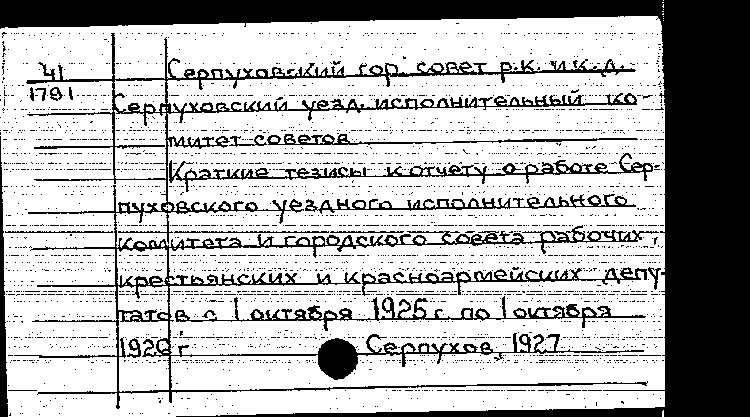 41
1791
Серпуховский гор. совет р.к. и к.д.
Серпуховский уезд. исполнительный ко-
митет советов
Краткие тезисы к отчету о работе Сер-
пуховского уездного исполнительного
комитета и городского совета рабочих,
крестьянских и красноармейских депу-
татов с 1 октября 1925 г. по 1 октября
1926 г. Серпухов, 1927